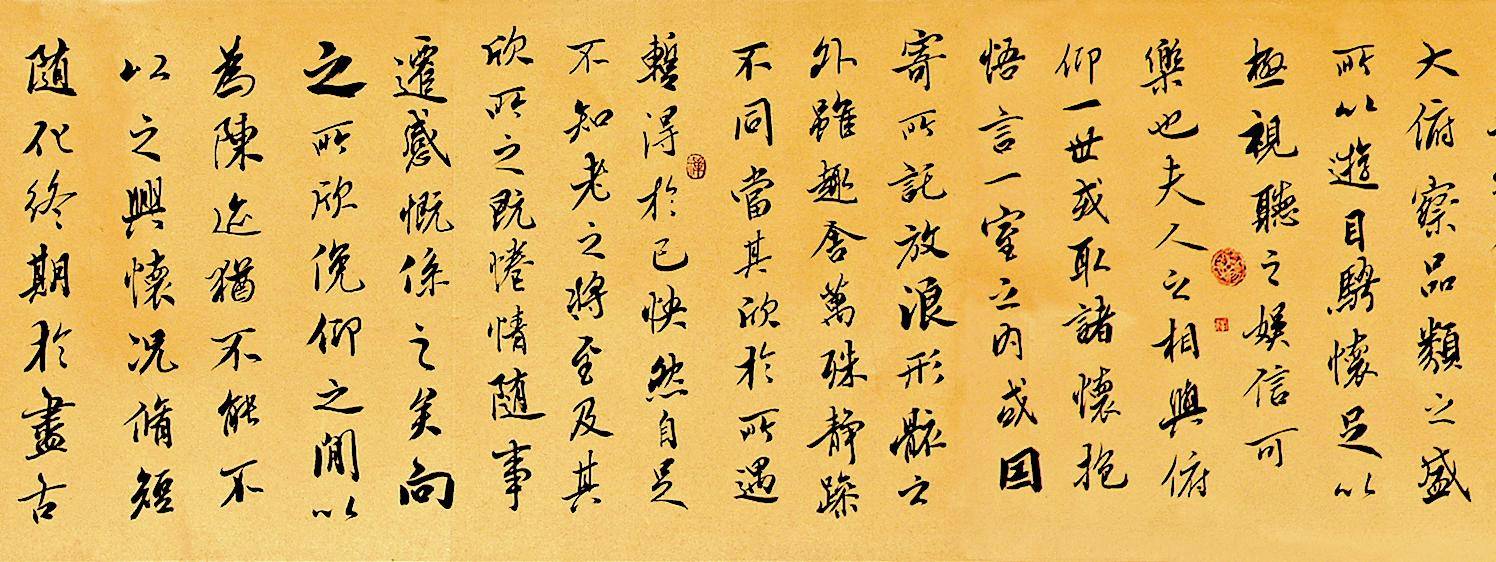 大俯察品類之盛
所以遊目騁懷足以
極視聽之娛信可
樂也夫人之相與俯
仰一世或取諸懷抱
悟言一室之內或因
寄所託放浪形骸之
外雖趣舍萬殊靜躁
不同當其欣於所遇
暫得於己快然自足
不知老之將至及其
欣所之既惓情隨事
遷感慨係之矣向
之所欣俛仰之間以
為陳迹猶不能不
以之興懷況脩短
随化終期於盡古